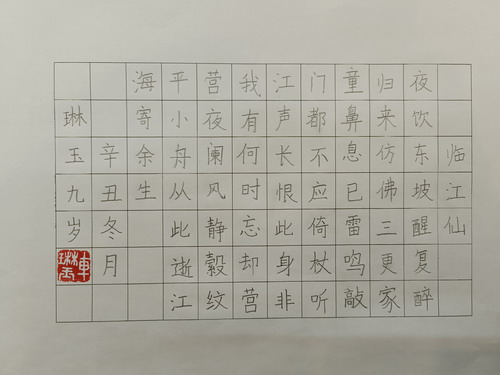 临江仙
夜饮东坡醒复醉
归来仿佛三更家
童鼻息已雷鸣敲
门都不应倚杖听
江声长恨此身非
我有何时忘却营
营夜阑风静縠纹
平小舟从此逝江
海寄余生
辛丑冬月
琳玉九岁
車琳玉